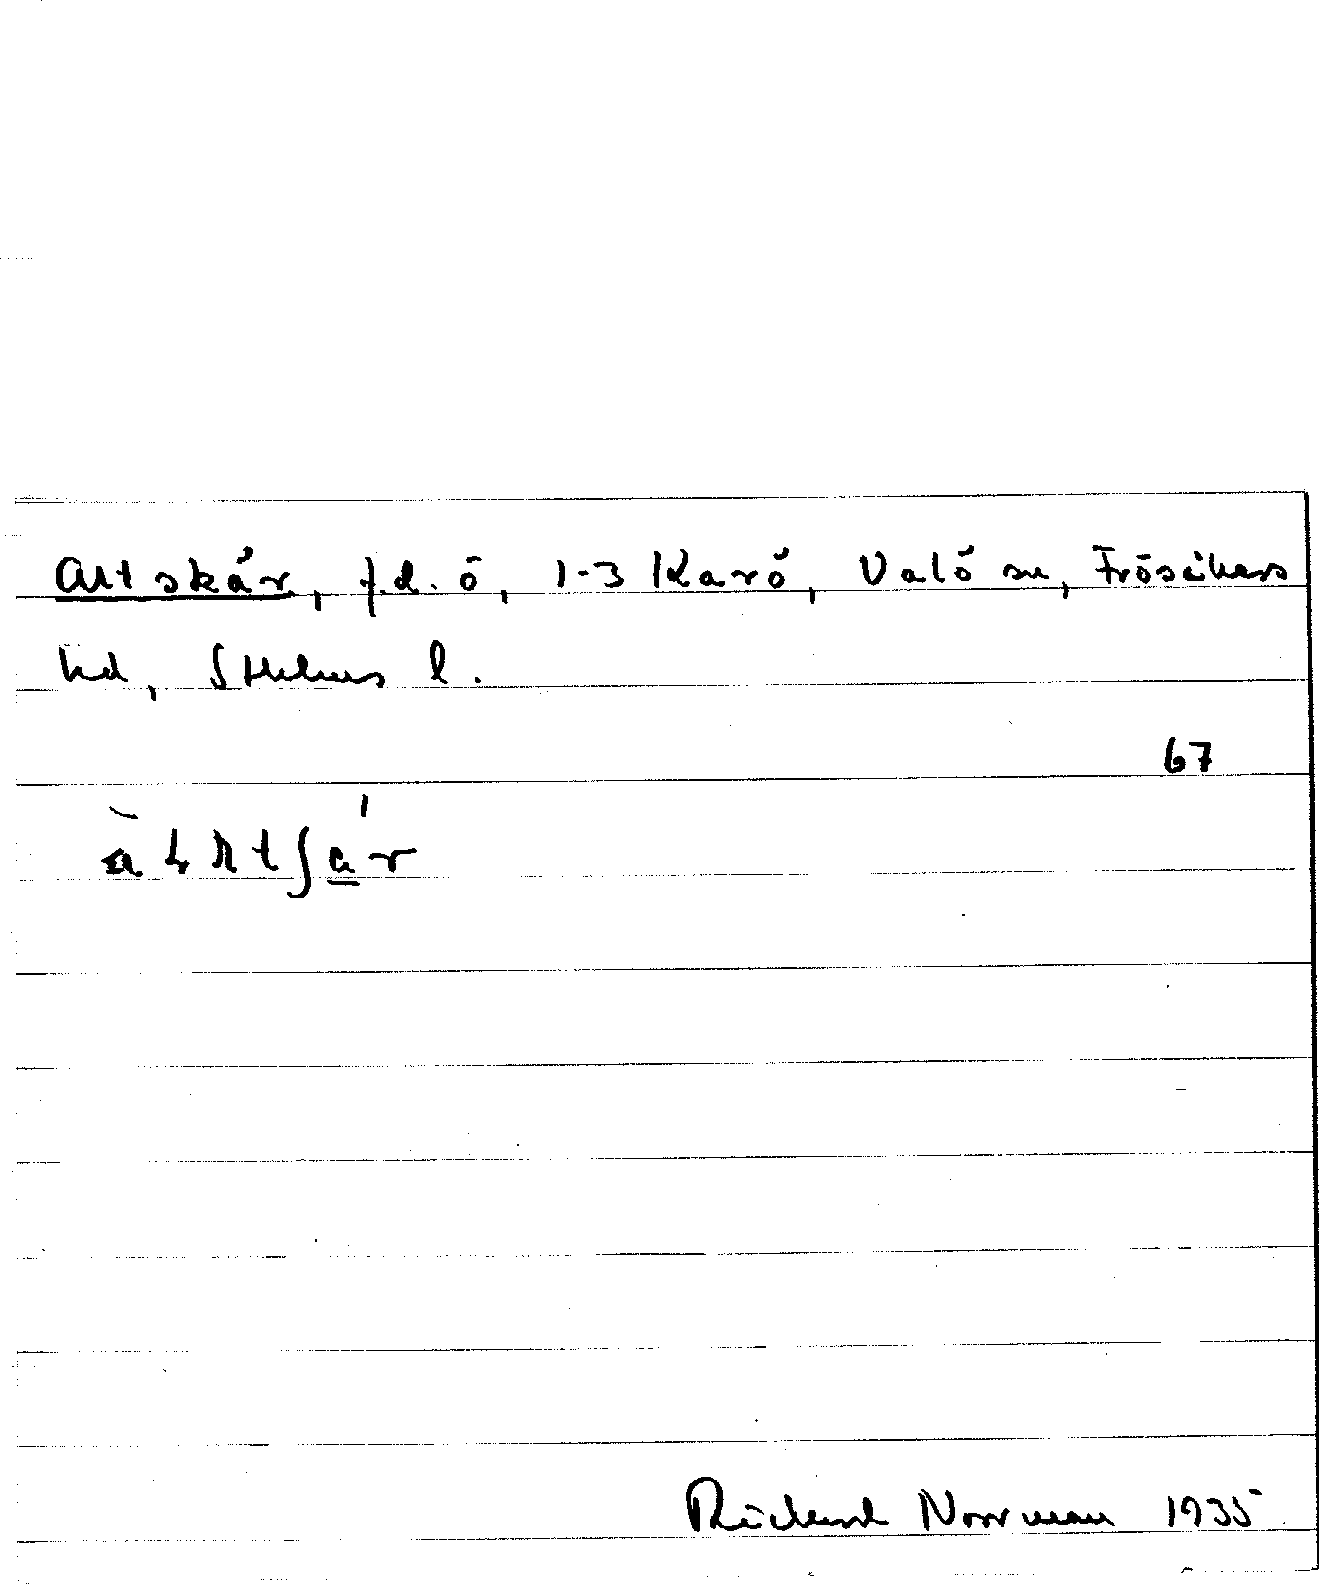 Altskär, f.d. ö, 1-3 Karö, Valö sn, Frösåkers
hd, Sthlms l.
67
Rickard Norrman 1935